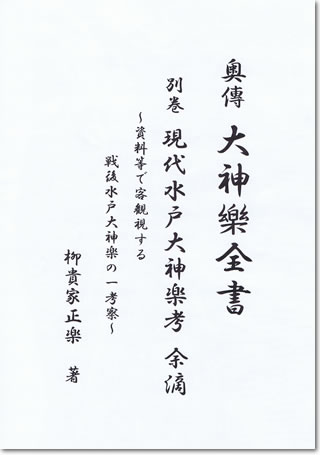 奥傳 大神樂全書
別巻 現代水戸大神楽考 余滴
～資料等で客観視する
戦後水戸大神楽の一考察～
柳貴家正楽 著